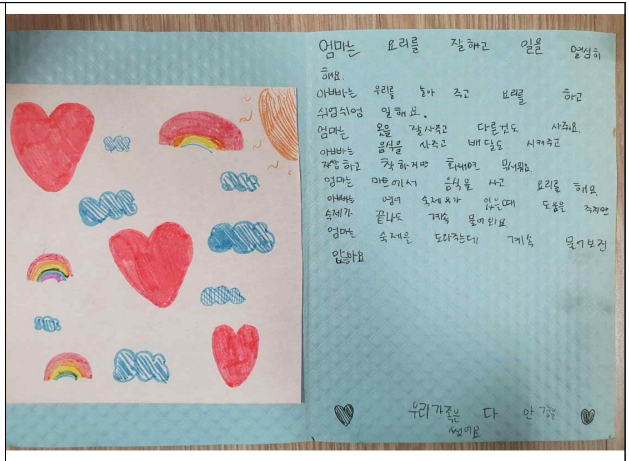 엄마는 요리를 잘하고 일을 열심히
해요.
아빠는 우리를 놀아 주고 요리를 하고
쉬엄쉬엄 일해요.
엄마는 옷을 잘사주고 다른것도 사주해요.
아빠는 음식을 사주고 배달도 시켜주고
자상하고 착하지만 화내면 무서워요.
엄마는 마트에서 음식을 사고 요리를 해요.
아빠는 영어 숙제 있을때 도움을 주지만
숙제가 끝나도 계속 물어봐요
엄마는 숙제을 도와주는데 계속 물어보진
않아요
우리가족은 다 안경을
썼어요